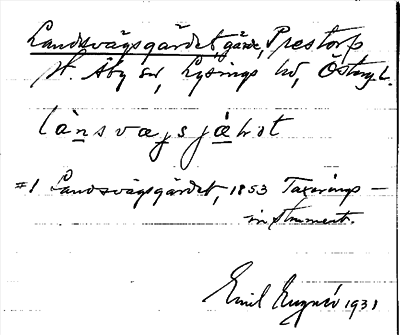 Landsvägsgärdet, gärde, Prestorp
St. Åby sn, Lysings hd, Östergl.
lànsvæjsjǽḷot
#1 Landsvägsgärdet, 1853 Taxerings-
instrument.
Emil 1931